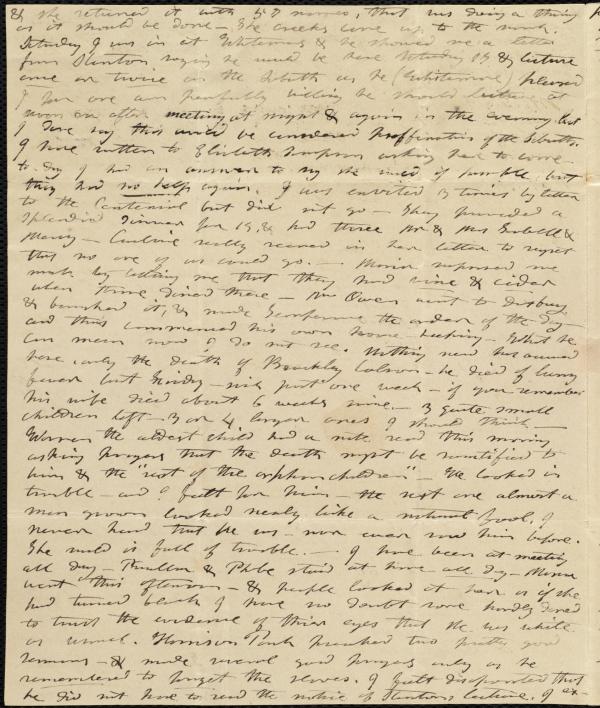 & she returned it with 50 names, that was doing a thing
as it should be done – The creeks come up to the mark.
Saturday I was in at Whitmores & he showed me a letter
from Stanton saying he would be here Saturday 19 & lecture
once or twice on the Sabbath as he (Whitmore) pleased
I for one am perfectly willing he should lecture at
noon or after meeting at night & again in the evening but
I dare say this would be considered proffination of the Sabbath.
I have written to Elizabeth Simpson asking her to come.
to-day I had an answer to say she would if possible but
they had no help again. I was invited 3 times by letter
to the Centenial but did not go – They provided a
splendid dinner for 19, & had three Mr & Mrs &
Mercy – Caroline really seemed in her letter to regret
that no one of us could go. – Maria me
much by telling me that they had wine & cider
when dined there – Mr Owen went to Duxbury
& at it, & made the order of the day
and thus commenced his own house-keeping – What he
can mean now I do not see. Nothing new has occurred
here, only the death of Colson – he died of lung
fever last Friday – sick just one week – if you remember
his wife died about 6 weeks since – 3 quite small
children left – 3 or 4 larger ones I should think –
the oldest child had a note read this morning
asking prayers that the death might be sanctified to
him & the "rest of the orphan children" – He looked in
trouble – and I felt for him – the next one almost a
man grown looked nearly like a natural fool, I
never heard that he was – nor ever saw him before.
The world is full of trouble. – I have been at meeting
all day – & Phebe staid at home all day – Maria
went this afternoon – & people looked at her as if she
had turned black I have no doubt some hardly dared
to trust the evidence of their eyes that she was white
as usual. Harrison Park preached two pretty good
sermons – & made several good prayers only as he
remembered to forget the slaves. I felt disappointed that
he did not have to read the notice of Stantons lecture. I ex-